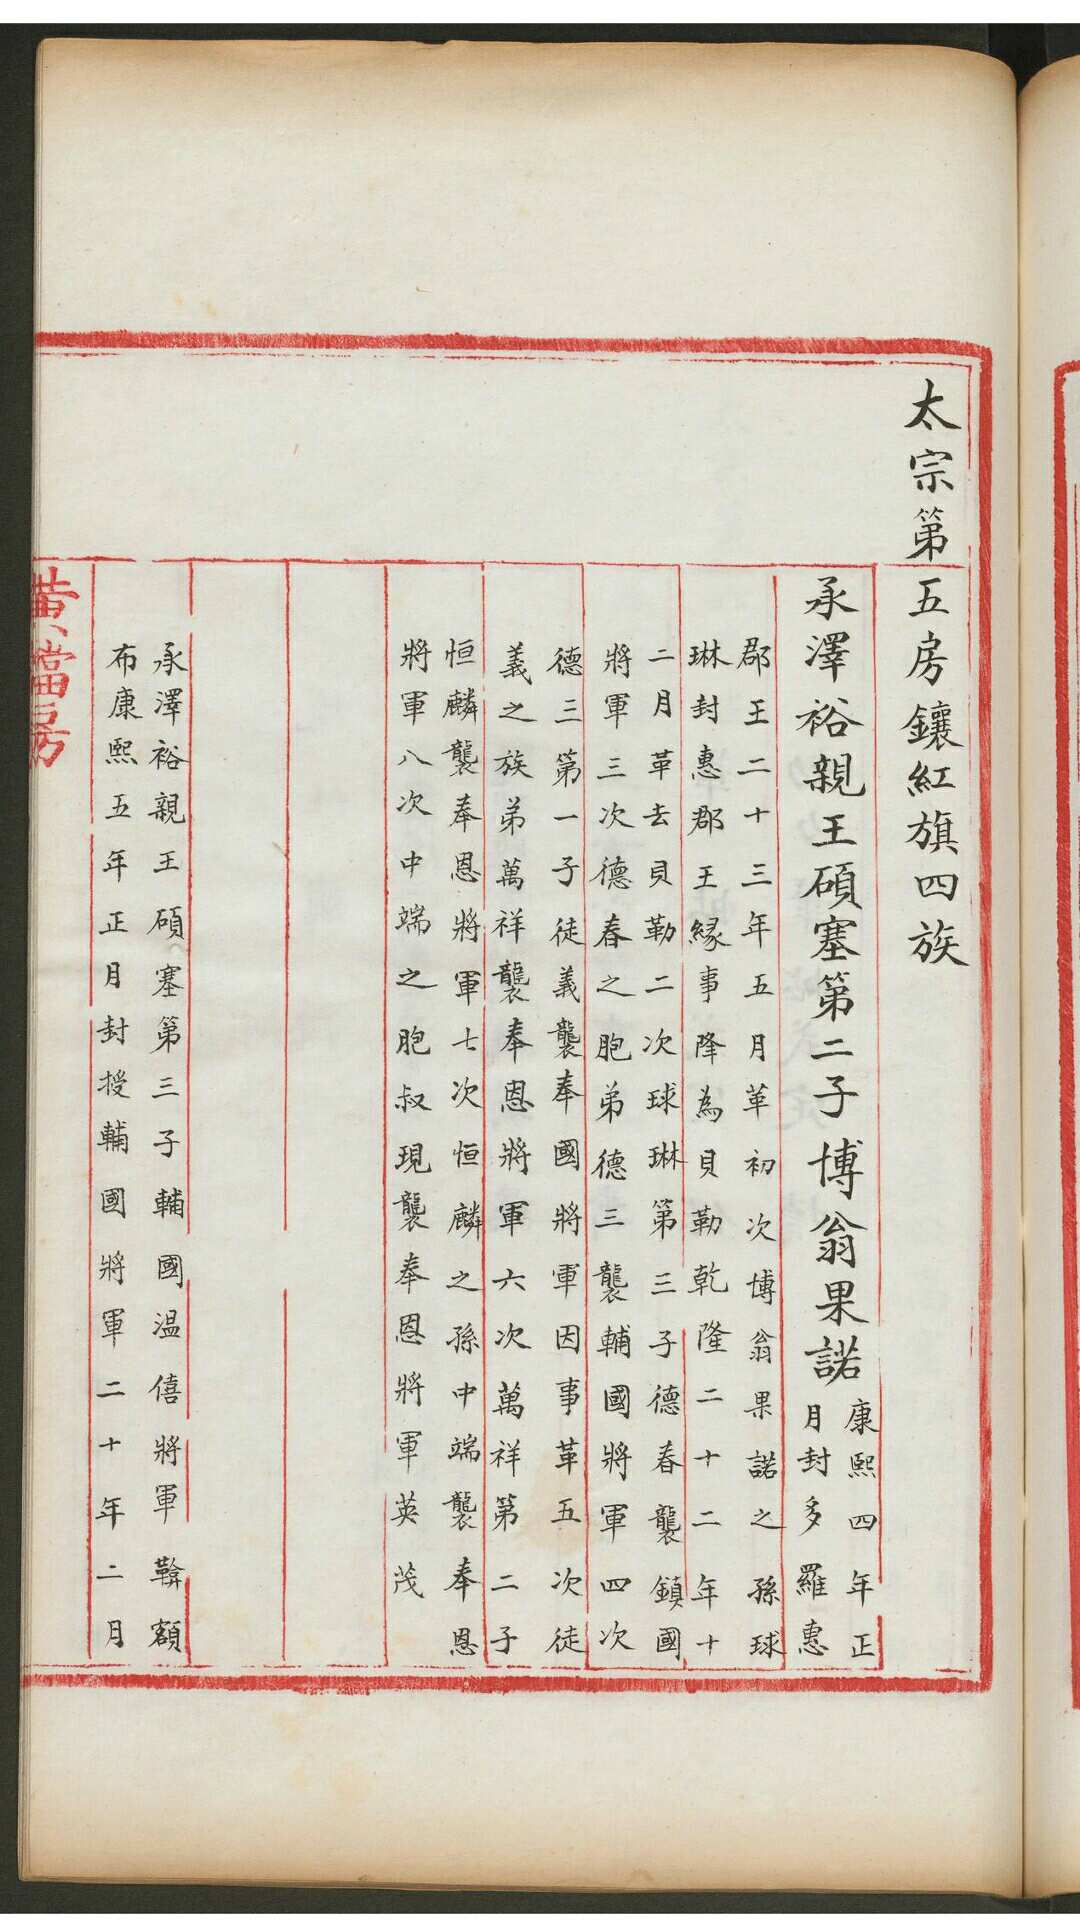 太宗第五房鑲紅旗四族
承澤裕親王碩塞第二子博翁果諾
康熙四年正
月封多羅惠
郡王二十三年五月革初次博翁果諾之孫球
琳封惠郡王緣事降為貝勒乾隆二十二年十
二月革去貝勒二次球琳第三子德春襲鎮國
將軍三次德春之胞弟德三襲輔國將軍四次
德三第一子徒義襲奉國將軍因事革五次徒
義之族弟萬祥襲奉恩將軍六次萬祥第二子
恒麟襲奉恩將軍七次恒麟之孫中端襲奉恩
將軍八次中端之胞叔現襲奉恩將軍英茂
承澤裕親王碩塞第三子輔國溫僖將軍鞥額
布康熙五年正月封授輔國將軍二十年二月
黃檔房